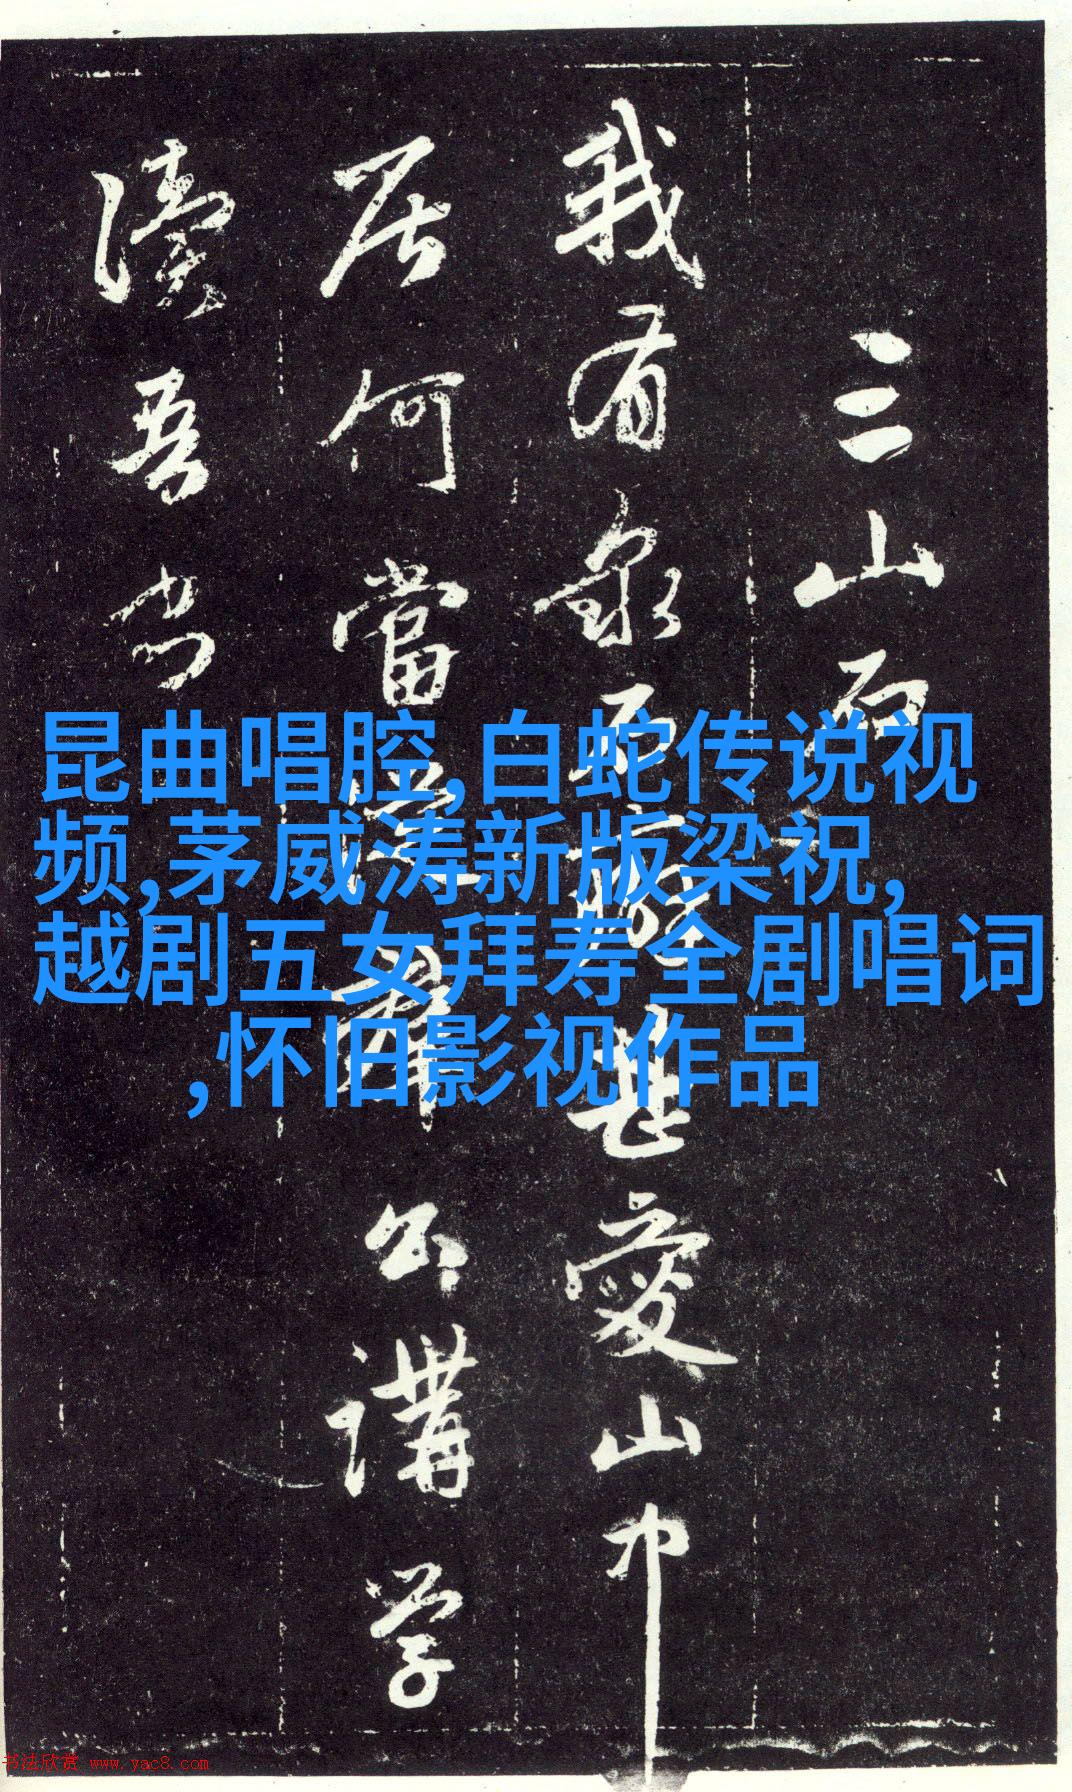 三山
我有泉石癖甚愛山中
居何當羣公講學
讀吾書
昆曲唱腔,白蛇传说视
频,茅威涛新版梁祝,
越剧五女拜寿全剧唱词
,怀旧影视作品
书法欣赏 www.yac8.com